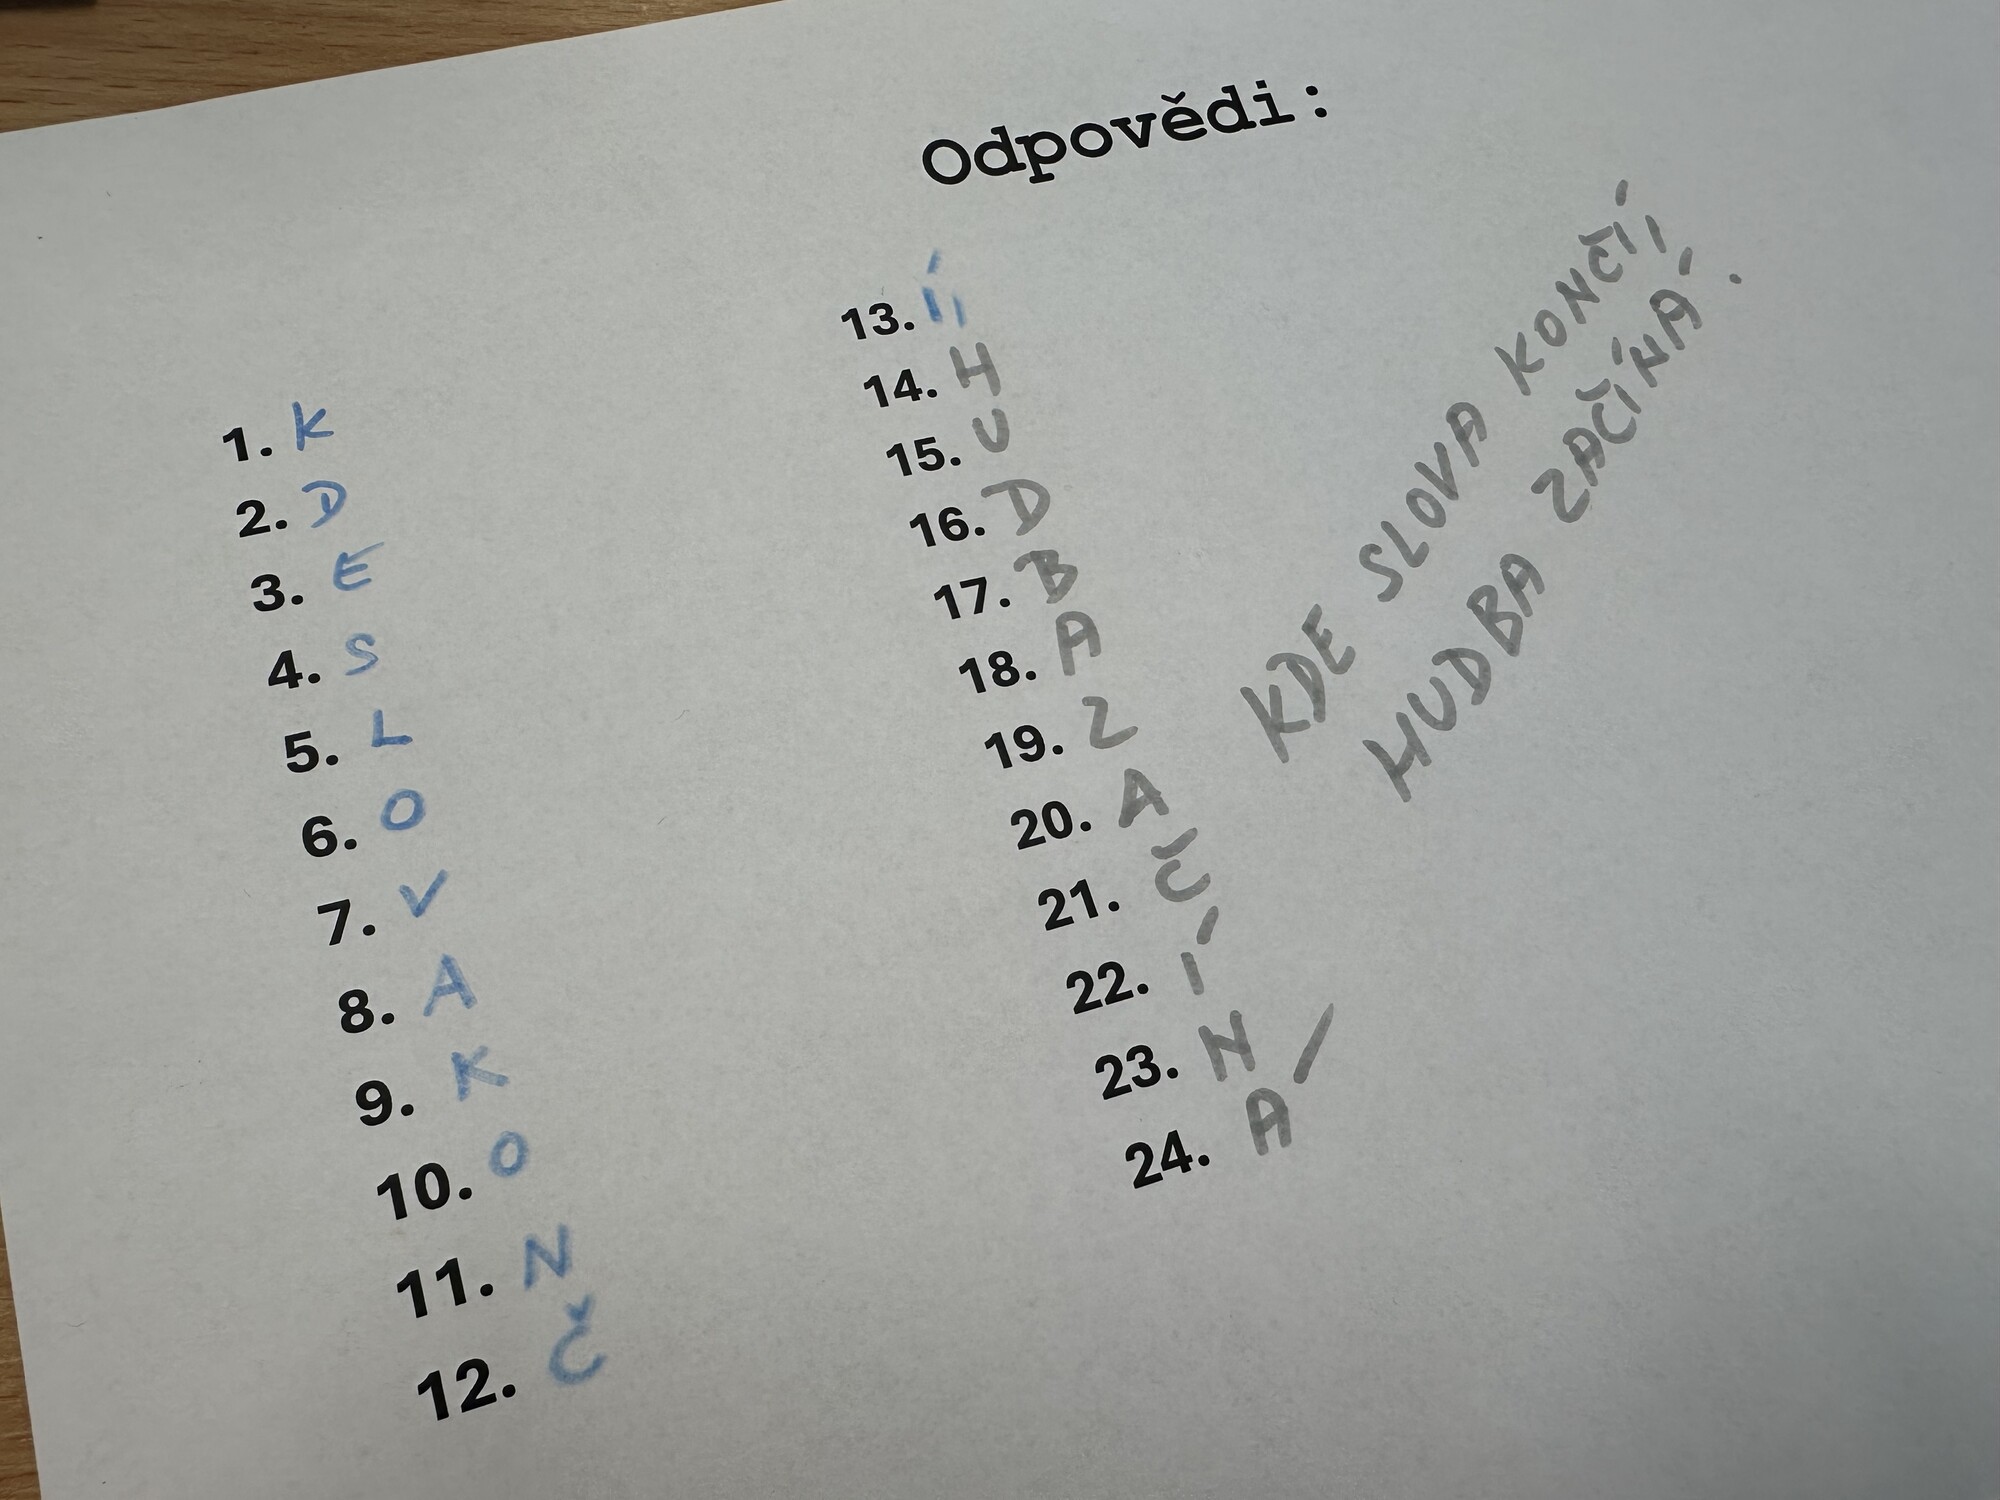 Odpovědi:
1. K
2. D
3. E
4. S
5. L
6. O
7. V
8. A
9. K
10. O
11. N
12. Č
13. Í,
14. H
15. U
16. D
17. B
18. A
19. Z
20. A
21. Č
22. Í
23. N
24. Á
KDE SLOVA KONČÍ,
HUDBA ZAČÍNÁ.